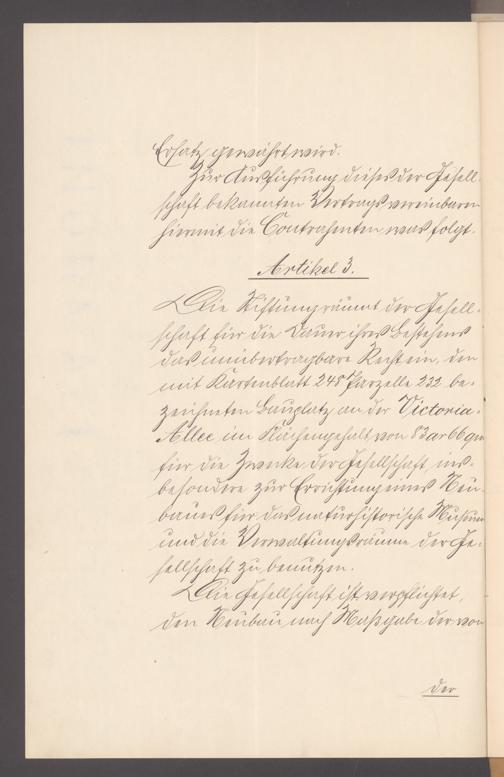 Ersatz gewährt wird.
Zur Ausführung dieses der Gesell-
schaft bekannten Vertrags vereinbaren
hiermit die Contrahenten was folgt.
Artikel 3.
Die Stiftung räumt der Gesell-
schaft für die Dauer ihres Bestehens
das unübertragbare Recht ein, den
mit Kartenblatt 248 Parzelle 222 be-
zeichneten Bauplatz an der Victoria-
Allee im Flächengehalt von 83 ar 66 qm
für die Zwecke der Gesellschaft, ins-
besondere zur Errichtung eines Neu-
baues für das naturhistorische Museum
und die Verwaltungsräume der Ge-
sellschaft zu benutzen.
Die Gesellschaft ist verpflichtet,
den Neubau nach Maßgabe der von
der